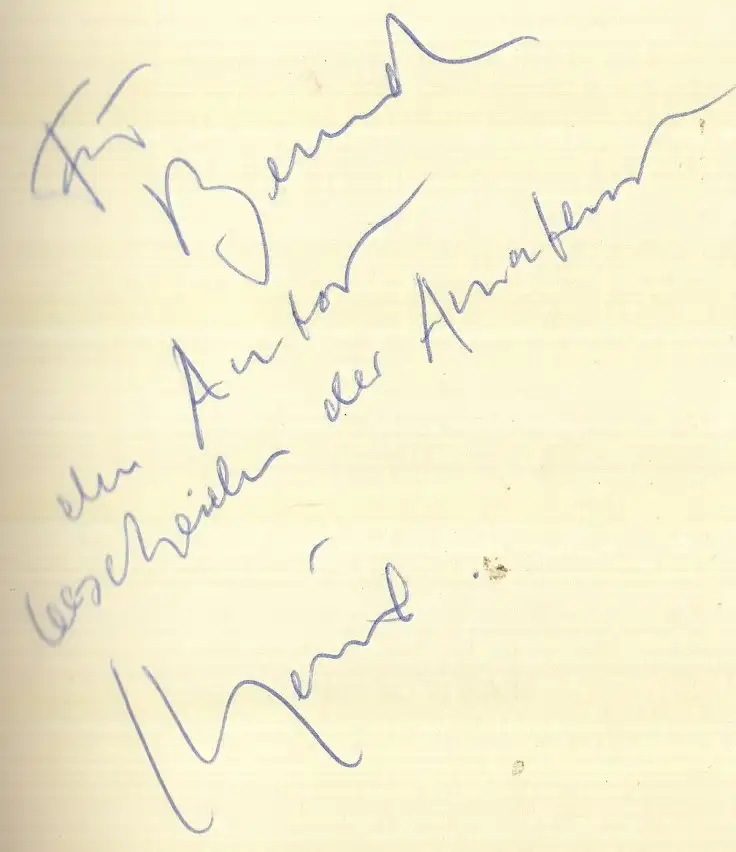 Für
Bernd
den Autor
bescheiden der Amateur